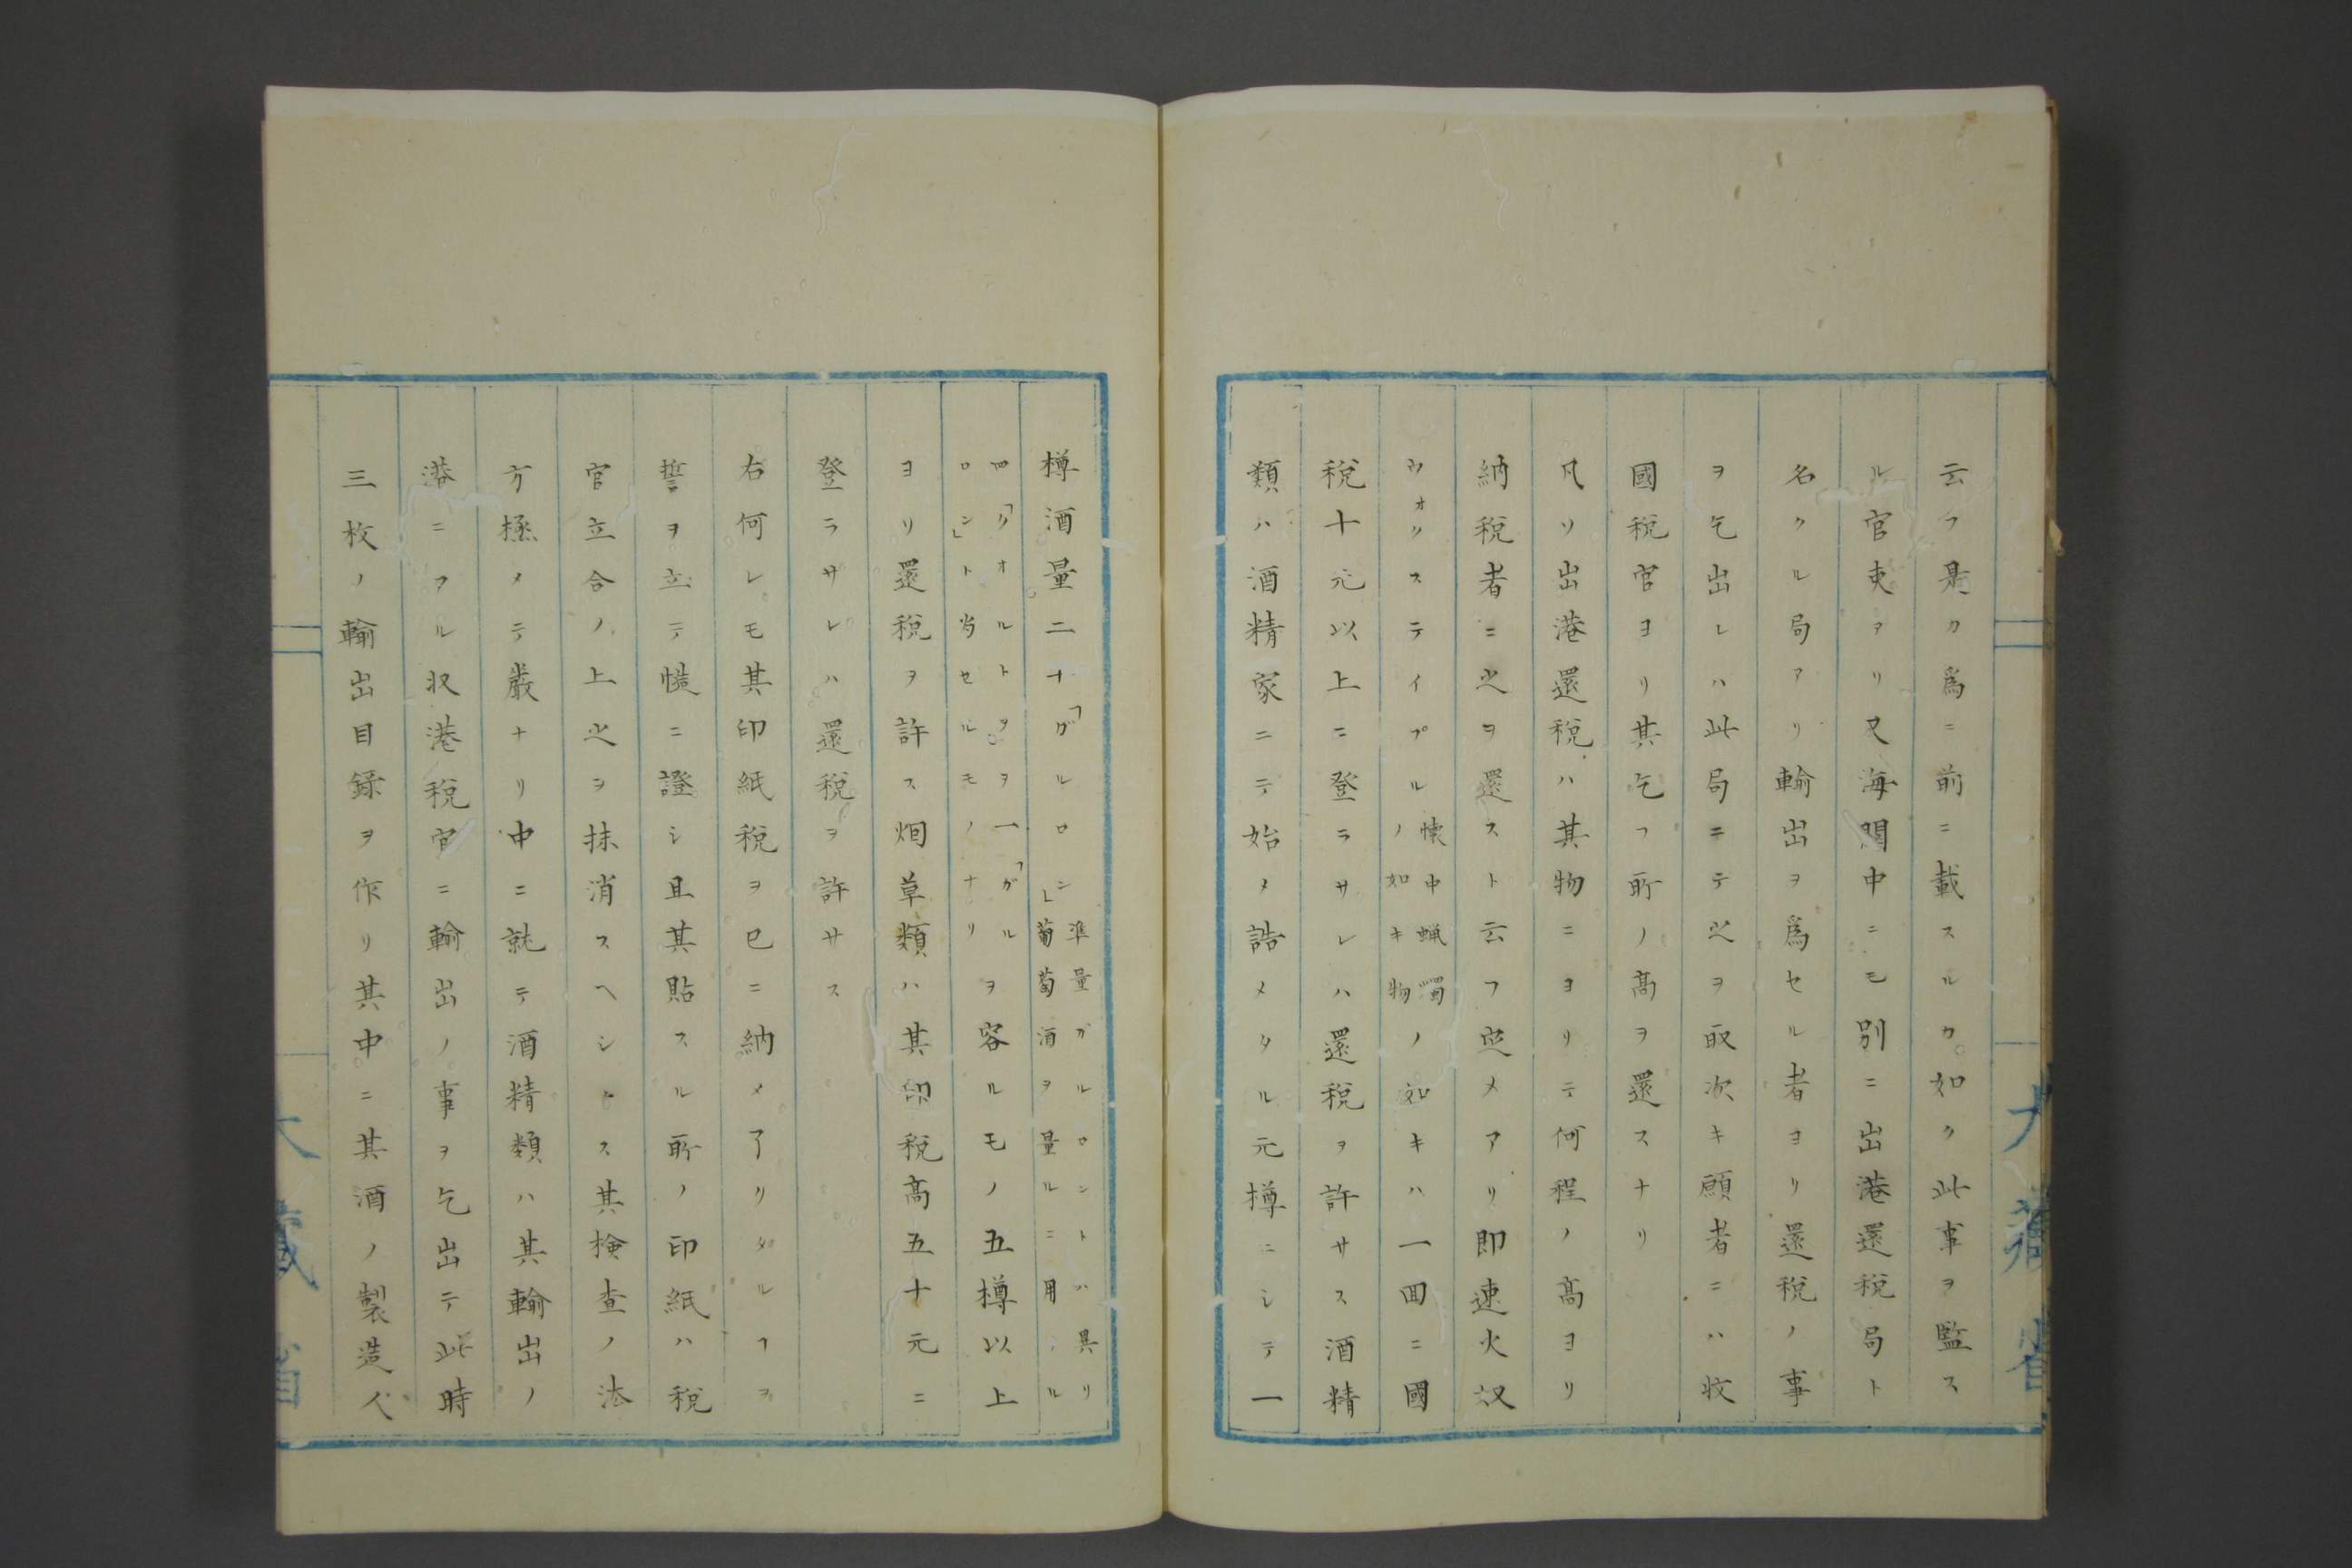 云フ是カ爲ニ前ニ載スルカ如ク此事ヲ監ス
ル官吏アリ又海関中ニモ別ニ出港還税局ト
名クル局アリ輸出ヲ爲セル者ヨリ還税ノ事
ヲ乞出レハ此局ニテ之ヲ取次キ願者ニハ收
國税官ヨリ其乞フ所ノ高ヲ還スナリ
凡ソ出港還税ハ其物ニヨリテ何程ノ高ヨリ
納税者ニ之ヲ還スト云フ定メアリ即速火奴
ウオクステイプル懐中蝋燭ノ如キ物ノ如キハ一回ニ國
税十元以上ニ登ラサレハ還税ヲ許サス酒精
類ハ酒精家ニテ始メ詰メタル元樽ニシテ一
樽酒量二十「ガルロン」準量ガルロントハ異リ葡萄酒ヲ量ルニ用ユル
四「クオルトヲヲ一「ガルロン」ト当セルモノナリヲ容ルモノ五樽以上
ヨリ還税ヲ許ス烟草類ハ其印税高五十元ニ
登ラサレハ還税ヲ許サス
右何レモ其印紙税ヲ已ニ納メ了リタルフヲ
誓ヲ立テ慥ニ證シ且其貼スル所ノ印紙ハ税
官立合ノ上之ヲ抹消スヘシトス其検査ノ法
方極メテ嚴ナリ中ニ就テ酒精類ハ其輸出ノ
港ニアル収港税官ニ輸出ノ事ヲ乞出テ此時
三枚ノ輸出目録ヲ作リ其中ニ其酒ノ製造人
大藏省
大藏省